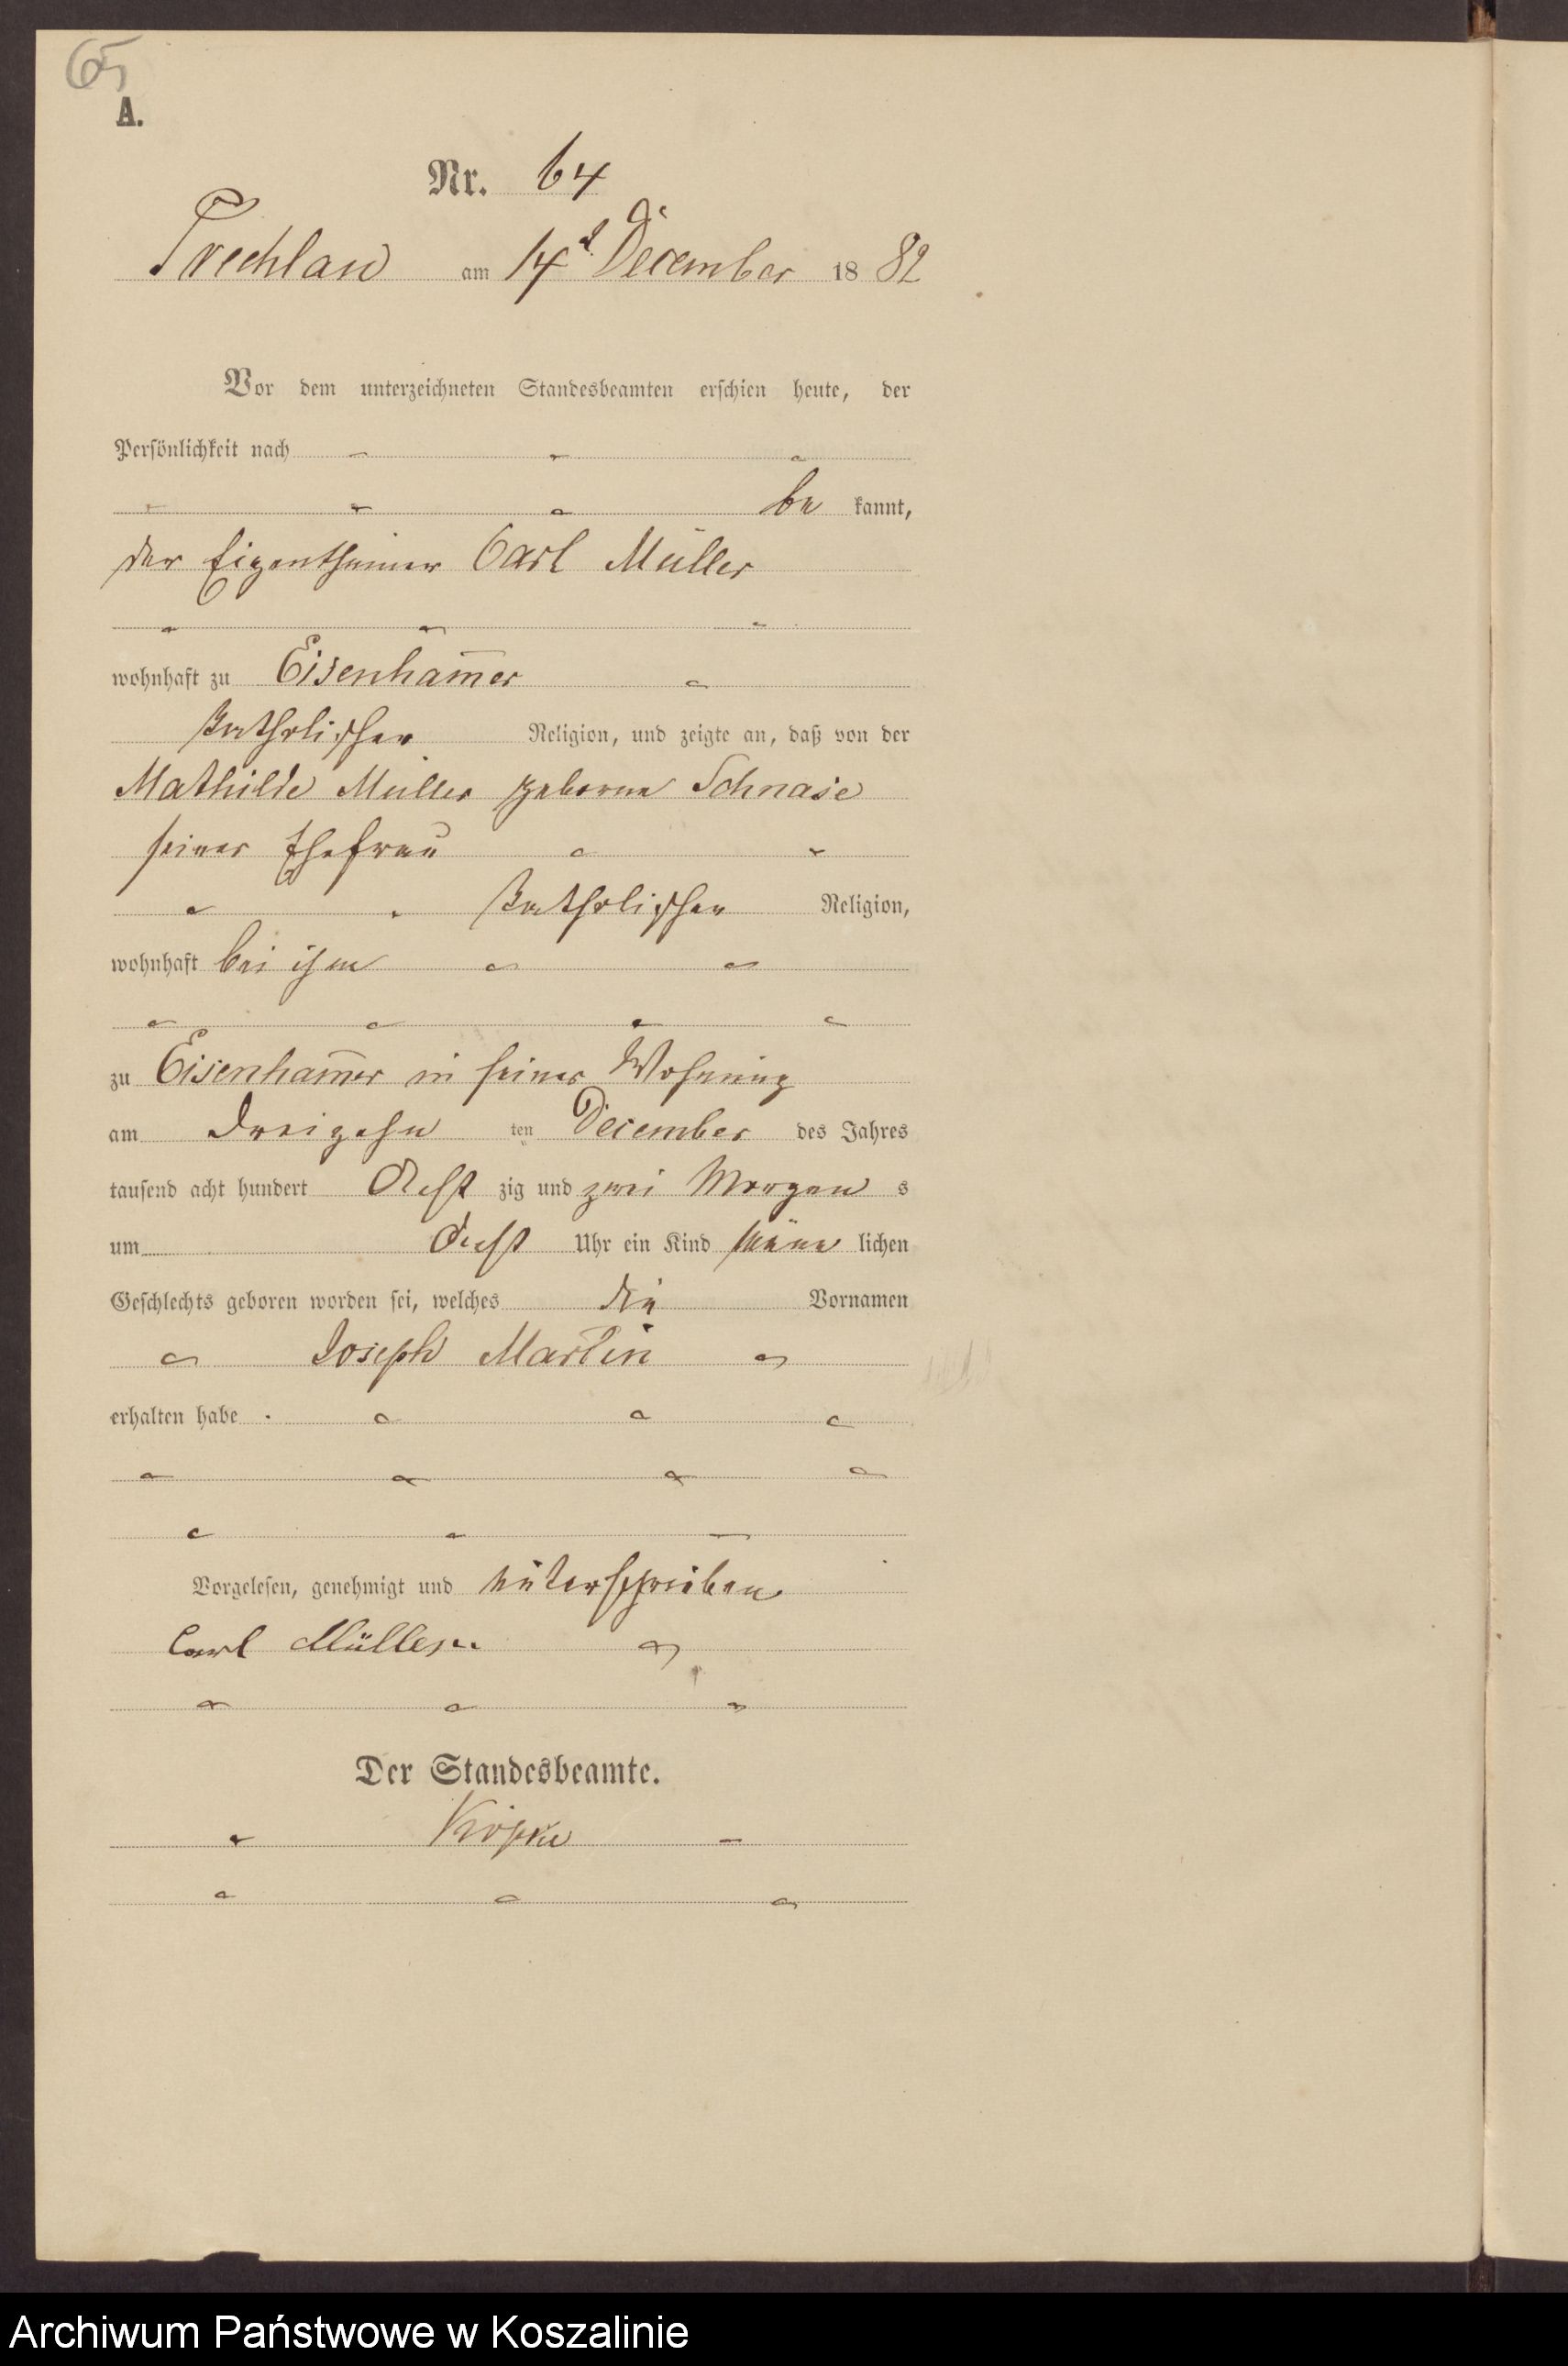 65
A.
Nr. 64
Prechlau am 14t December 1882
Vor dem unterzeichneten Standesbeamten erschien heute, der
Persönlichkeit nach
be kannt,
der Eigenthümer Carl Müller
wohnhaft zu Eisenham̅er
katholischer Religion, und zeigte an, daß von der
Mathilde Müller geborne Schnase
seiner Ehefrau
katholischer Religion,
wohnhaft bei ihm
zu Eisenham̅er in seiner Wohnung
am dreizehn ten December des Jahres
tausend acht hundert Acht zig und zwei Morgen s
um Acht Uhr ein Kind männ lichen
Geschlechts geboren worden sei, welches die Vornamen
Joseph Martin
erhalten habe .
Vorgelesen, genehmigt und unterschrieben
Carl Müller.
Der Standesbeamte.
Archiwum Państwowe w Koszalinie